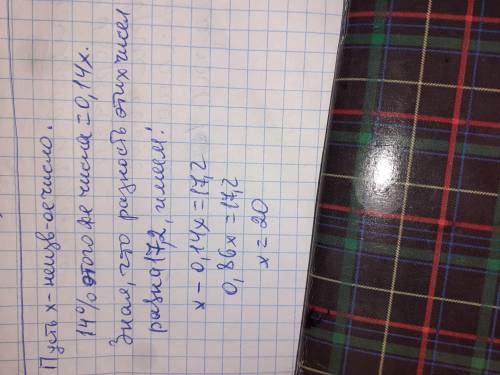 Пусть х - неизв-ое число.
14% этого же числа = 0,14х.
Зная, что разность этих чисел
равна 17,2, имеем:
х - 0,14х = 17,2
0,86х = 17,2
х = 20